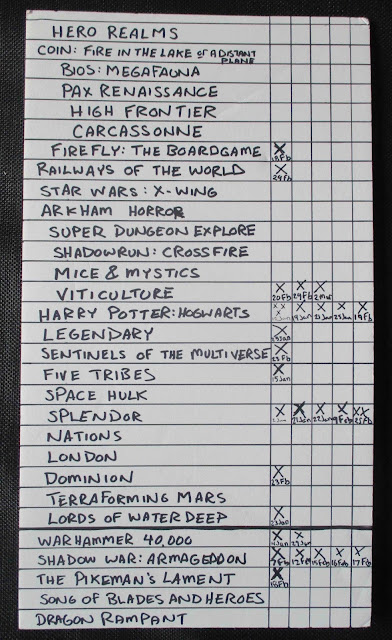 HERO REALMS
COIN: FIRE IN THE LAKE or A DISTANT
PLANE
BIOS: MEGAFAUNA
PAX RENAISSANCE
HIGH FRONTIER
CARCASSONNE
FIREFLY: THE BOARDGAME X
18Fb
RAILWAYS OF THE WORLD X
24Fb
STAR WARS: X-WING
ARKHAM HORROR
SUPER DUNGEON EXPLORE
SHADOWRUN: CROSSFIRE
MICE & MYSTICS
VITICULTURE X X X
20Fb 24Fb 2Mar
HARRY POTTER: HOGWARTS X X X X X X
19Fb
LEGENDARY X
SENTINELS OF THE MULTIVERSE X
23Fb
FIVE TRIBES X
15Jan
SPACE HULK
SPLENDOR X X X X X
22Jan 9Feb 25Fb
NATIONS
LONDON
DOMINION X
23Fb
TERRAFORMING MARS
LORDS OF WATERDEEP X
WARHAMMER 40,000 X X
SHADOW WAR: ARMAGEDDON X X X X X
9Fb 12Fb 15Fb 16Fb 17Fb
THE PIKEMAN'S LAMENT X
18Fb
SONG OF BLADES AND HEROES
DRAGON RAMPANT